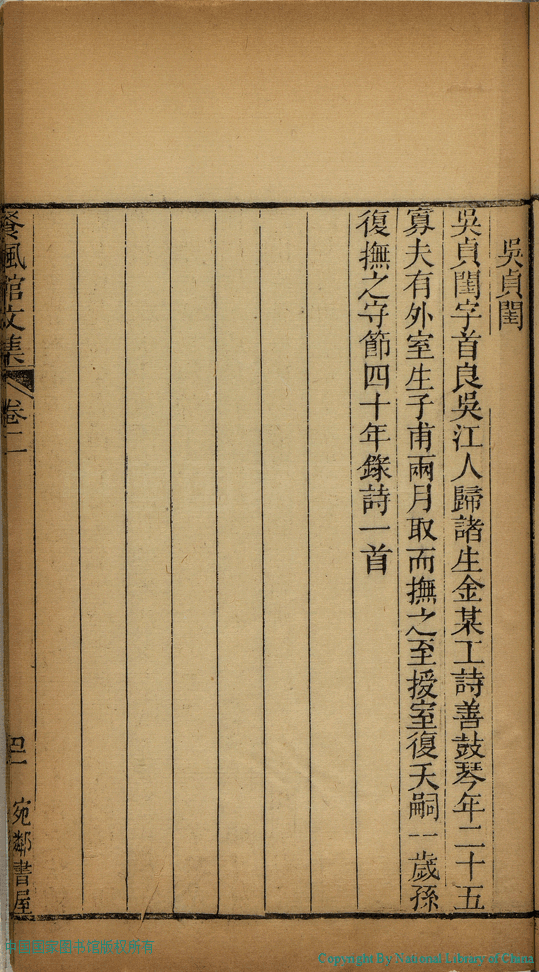 吳貞閨
吳貞閨字首良吳江人歸諸生金某工詩善鼓琴年二十五
寡夫有外室生子甫兩月取而撫之至授室復夭嗣一歲孫
復撫之守節四十年錄詩一首
餐風館文集 卷二
宛鄰書屋
国国家图书馆版权所有
Copyright By National Library of China